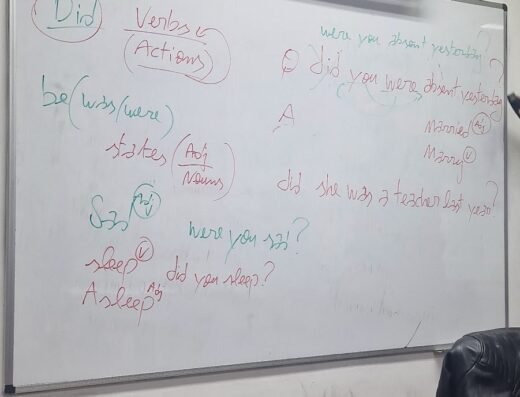 Did Verbs
(Actions)
were you absent yesterday?
Q did you were absent yesterday?
be (was/were)
A
Married Adj
Marry V
states (Adj
Nouns)
did she was a teacher last year?
Sad Adj
were you sad?
sleep V did you sleep?
Asleep Adj